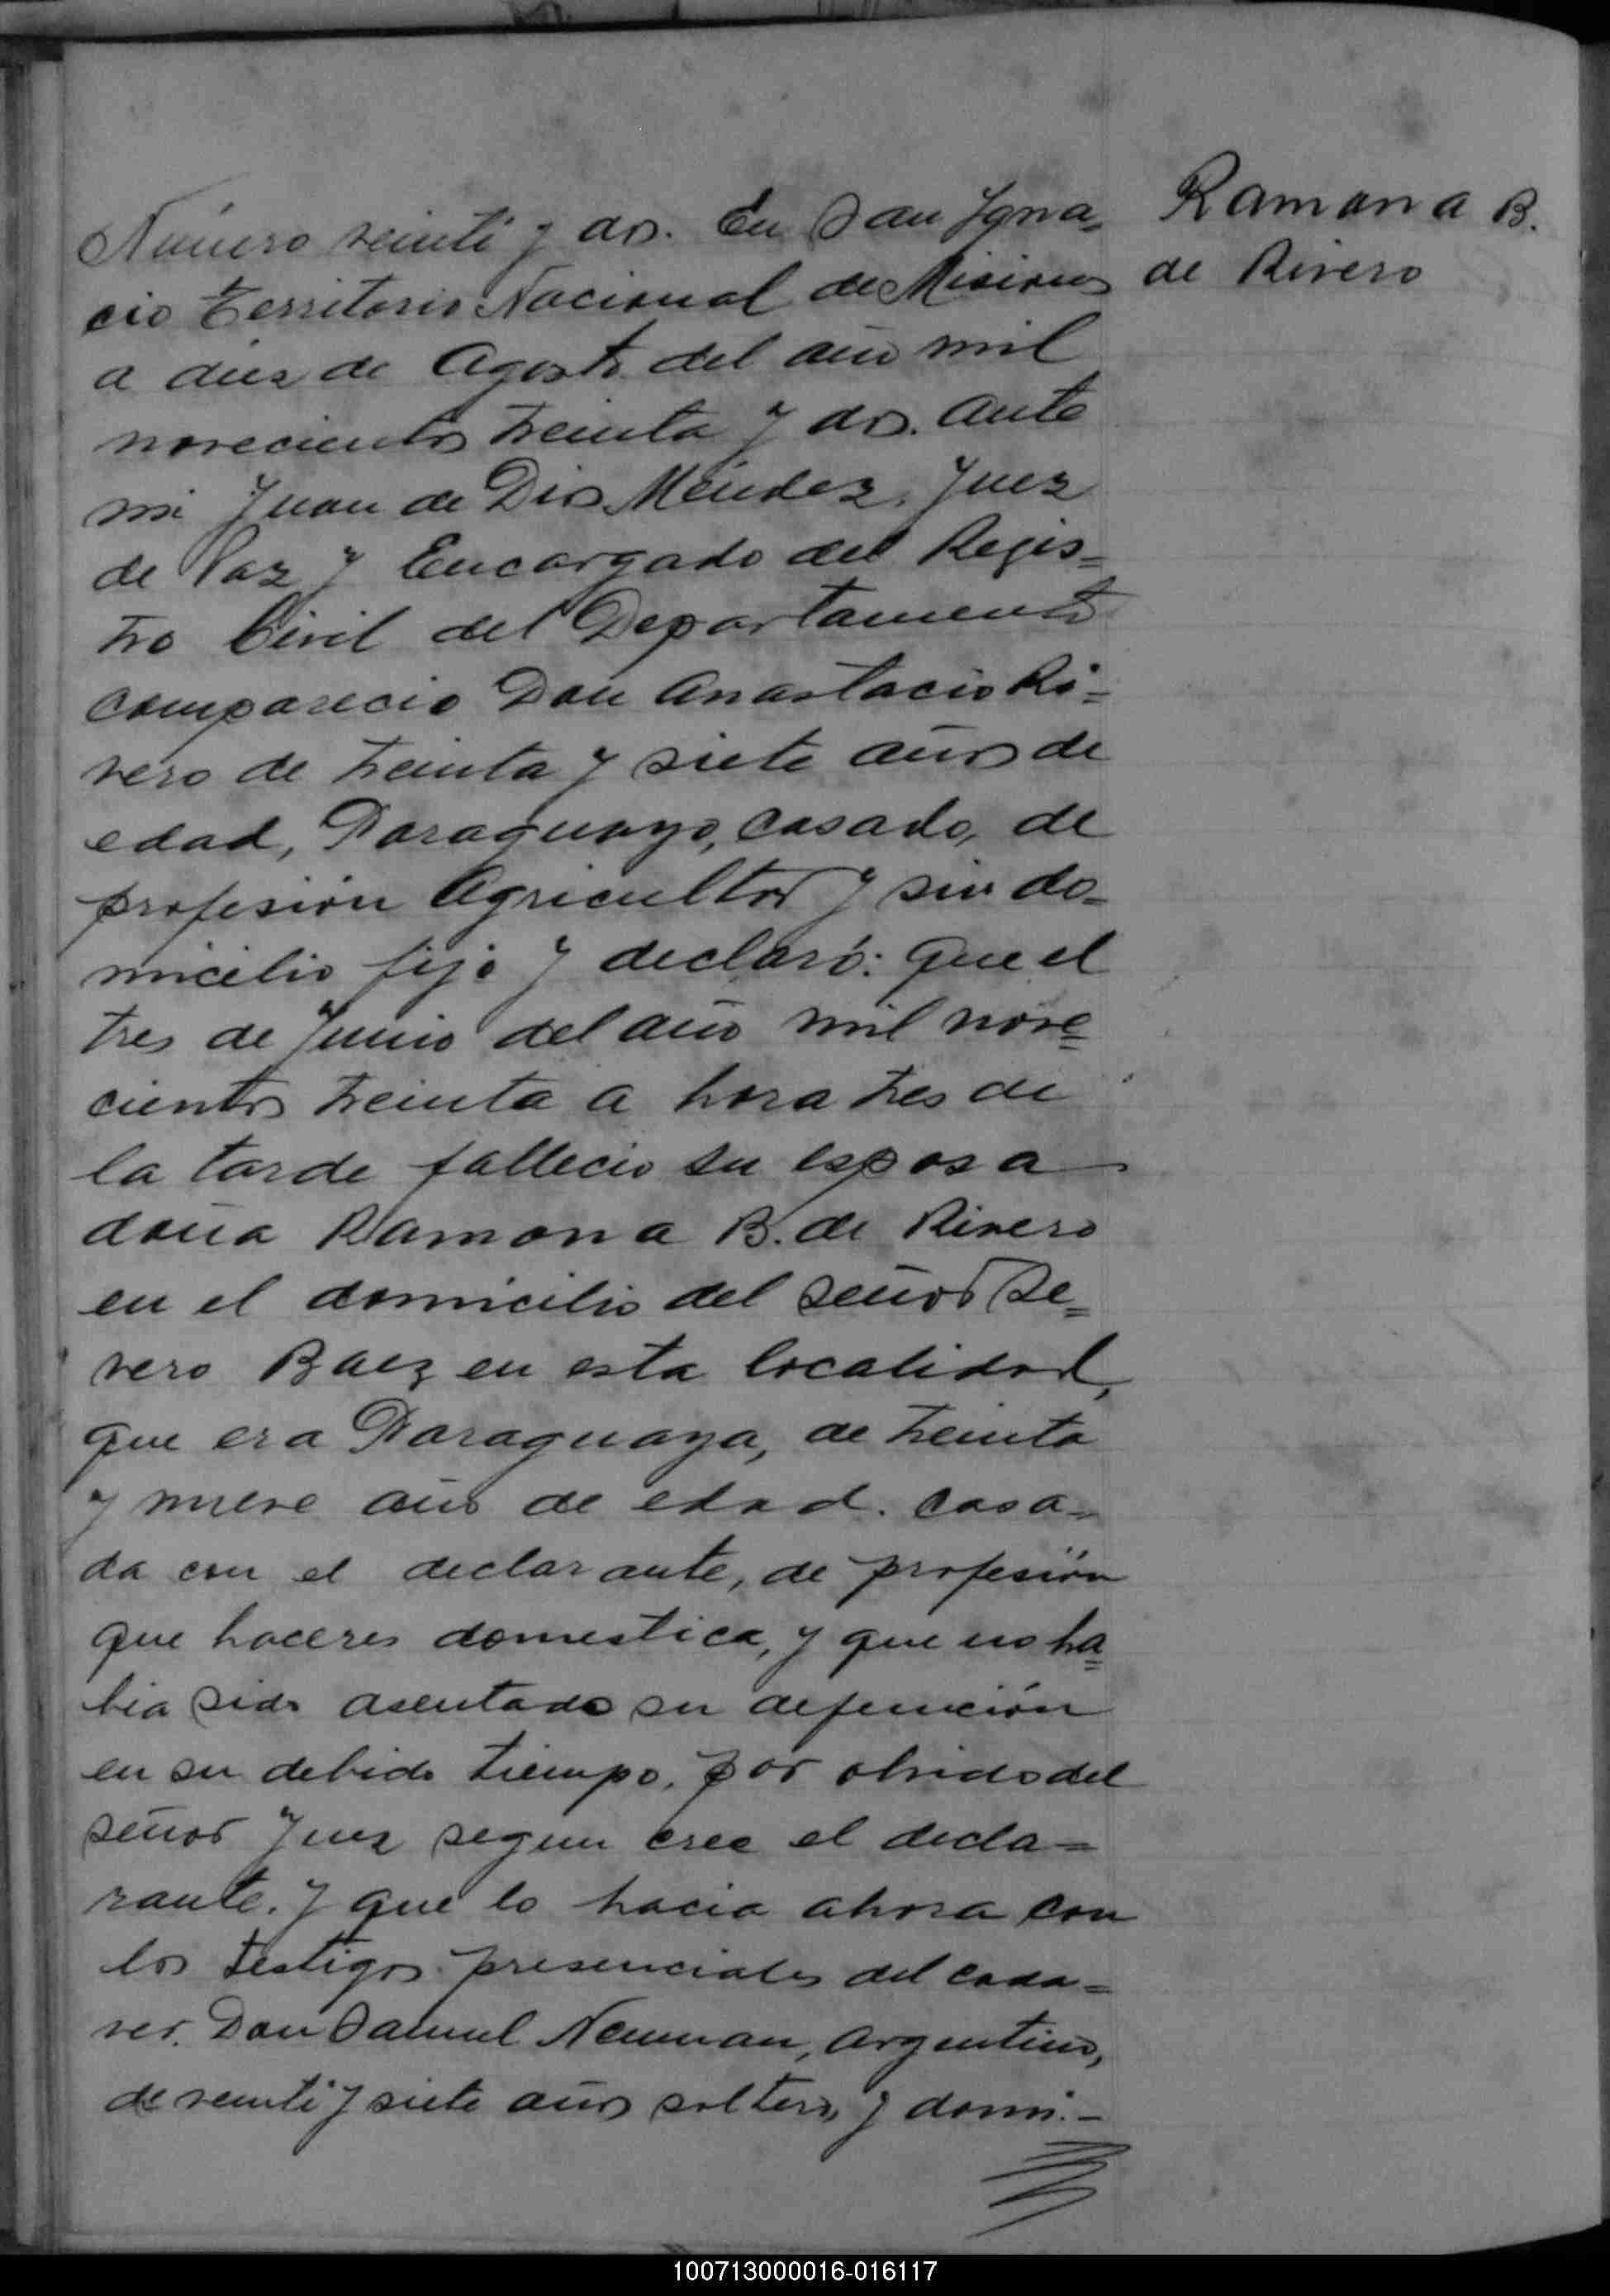 Ramona B.
de Rivero
Número veinti y dos. En San Igna=
cio Territorio Nacional de Misiones
a diez de Agosto del año mil
novecientos treinta y dos. Ante
mi Juan de Dios Méndez, Juez
de Paz y Encargado del Regis=
tro Civil del Departamento
comparecio Don Anastacio Ri=
vero de treinta y siete años de
edad, Paraguayo, casado, de
profesión Agricultor y sin do=
micilio fijo y declaró: que el
tres de Junio del año mil nove=
cientos treinta a hora tres de
la tarde fallecio su esposa
doña Ramona B. de Rivero
en el domicilio del señor Se=
vero Baez en esta localidad,
que era Paraguaya, de treinta
y nueve años de edad. casa=
da con el declarante, de profesión
que haceres domestica, y que no ha=
bia sido asentado su defunción
en su debido tiempo, por olvido del
señor Juez segun cree el decla=
rante. y que lo hacia ahora con
los testigos presenciales del cada=
ver. Don Samuel Neuman, Argentino,
de veinti y siete años soltero, y domi.-
100713000016-016117